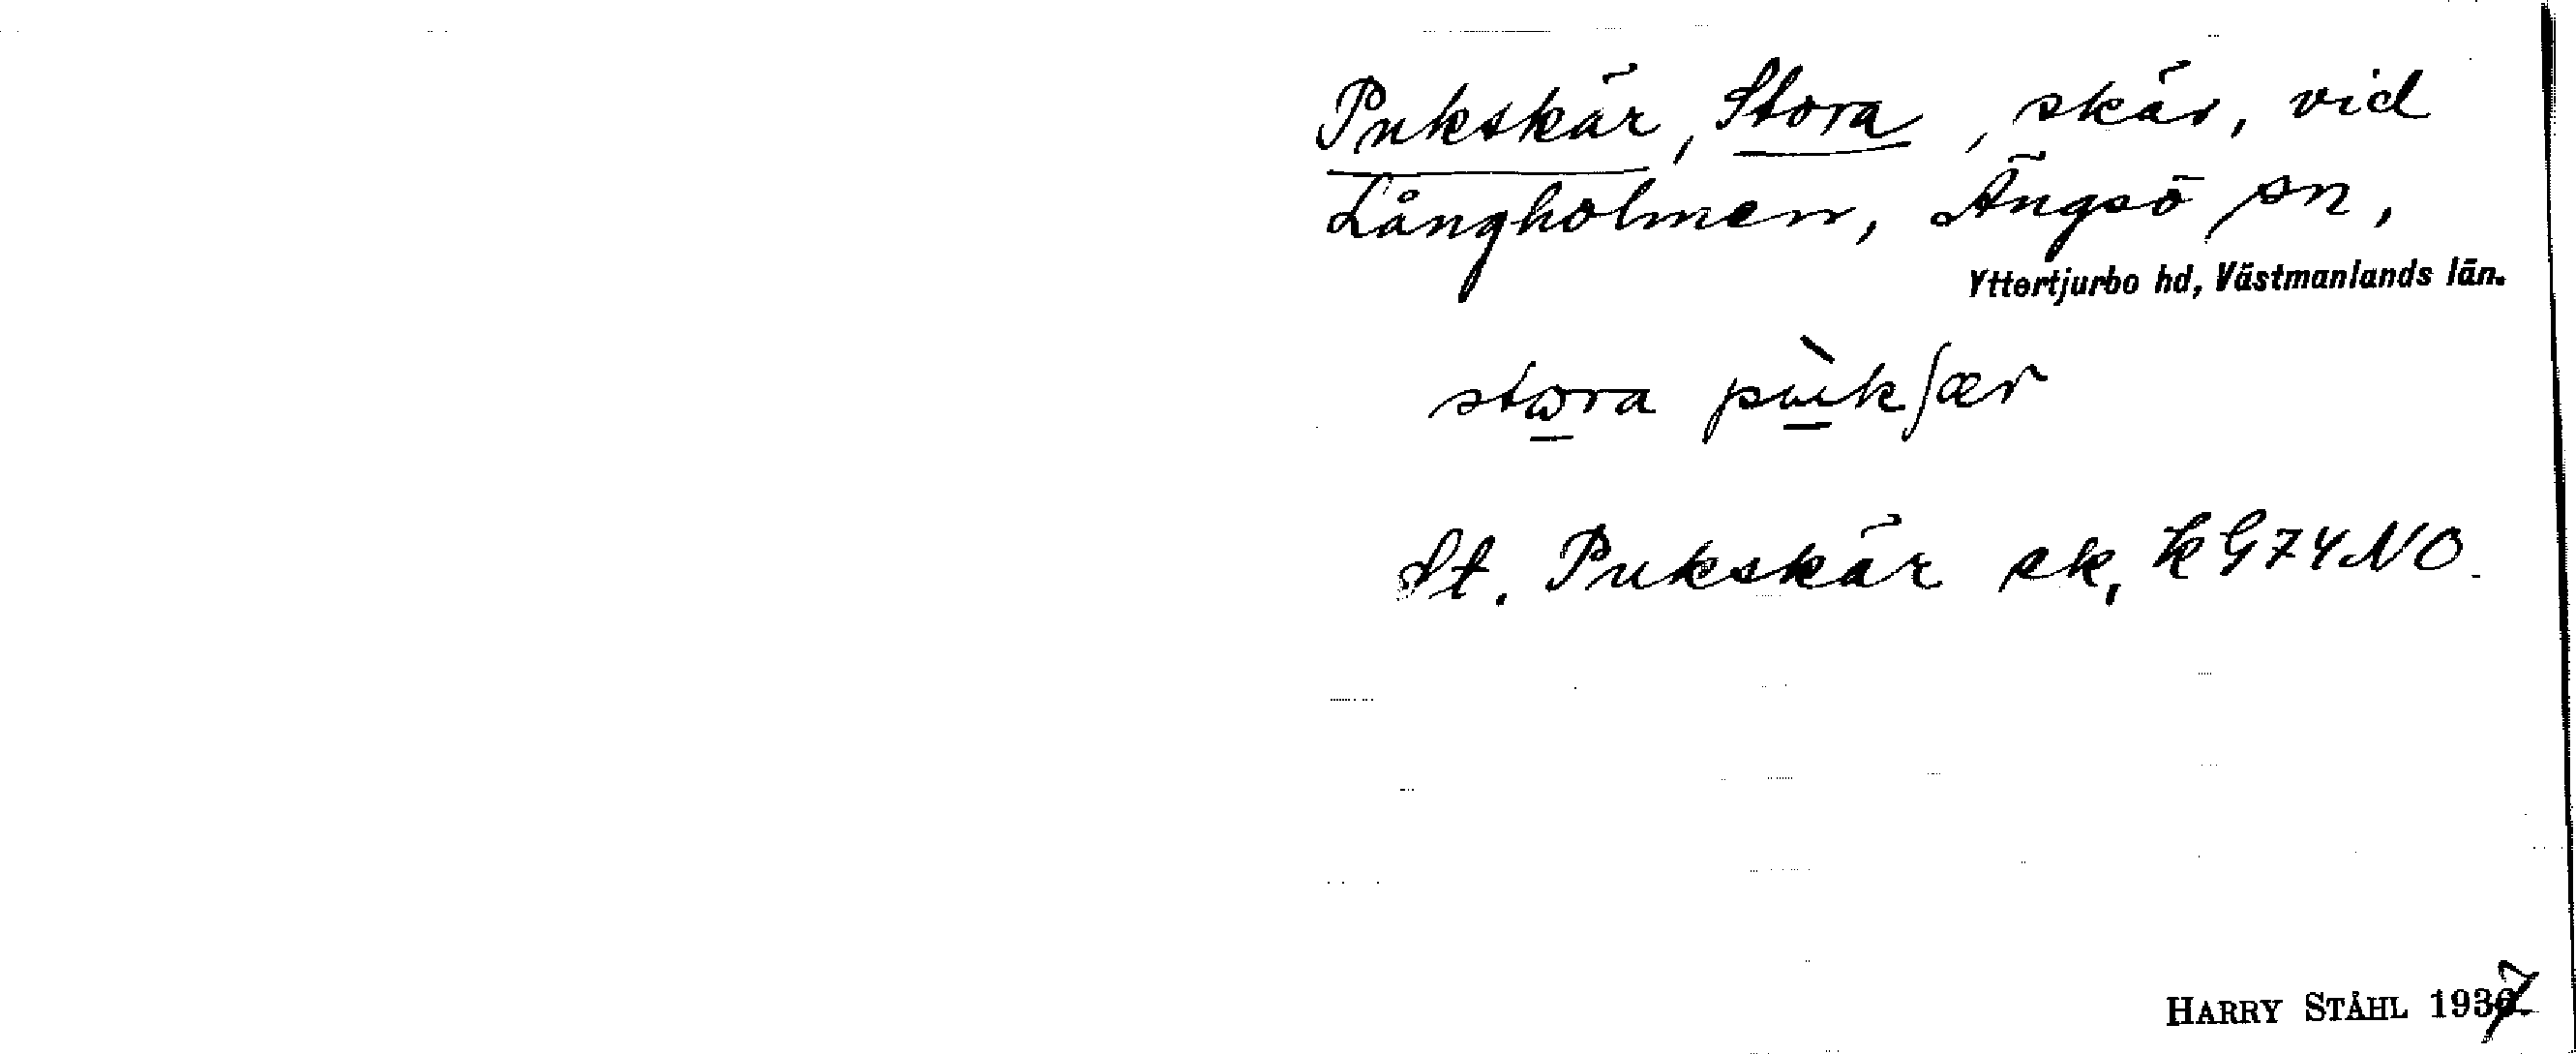 Pukskär, Stora, skär, vid
Långholmen, Ängsö sn,
Yttertjurbo hd, Västmanlands län.
stωra pùkʃær
St. Pukskär sk, kG74NO.
HARRY STÅHL 1937